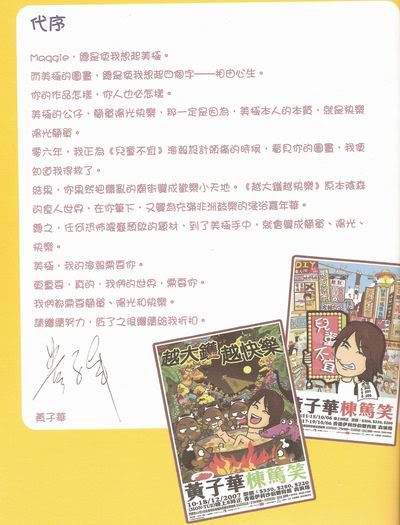 代序
Maggie，總是使我想起美極。
而美極的圖畫，總是使我想起四個字——相由心生。
你的作品怎樣，你人也必怎樣。
美極的公仔，簡單陽光快樂，那一定是因為，美極本人的本質，就是快樂
陽光簡單。
零六年，我正為《兒童不宜》海報設計頭痛的時候，看見你的圖畫，我便
知道我得救了。
結果，你果然把髒亂的廟街變成歡樂小天地。《越大鑊越快樂》原本陰森
的食人世界，在你筆下，又變為充滿非洲鼓樂的嘉年華。
總之，任何恐怖的題材，到了美極手中，就會變成簡單、陽光、
快樂。
美極，我的海報需要你。
更重要，真的，我們的世界，需要你。
我們都需要簡單、陽光和快樂。
請繼續努力，之後繼續給我折扣。
黃子華
黃子華
DIY
兒童不宜
黃子華棟篤笑
越大鑊越快樂
黃子華棟篤笑
10-18/12/2007